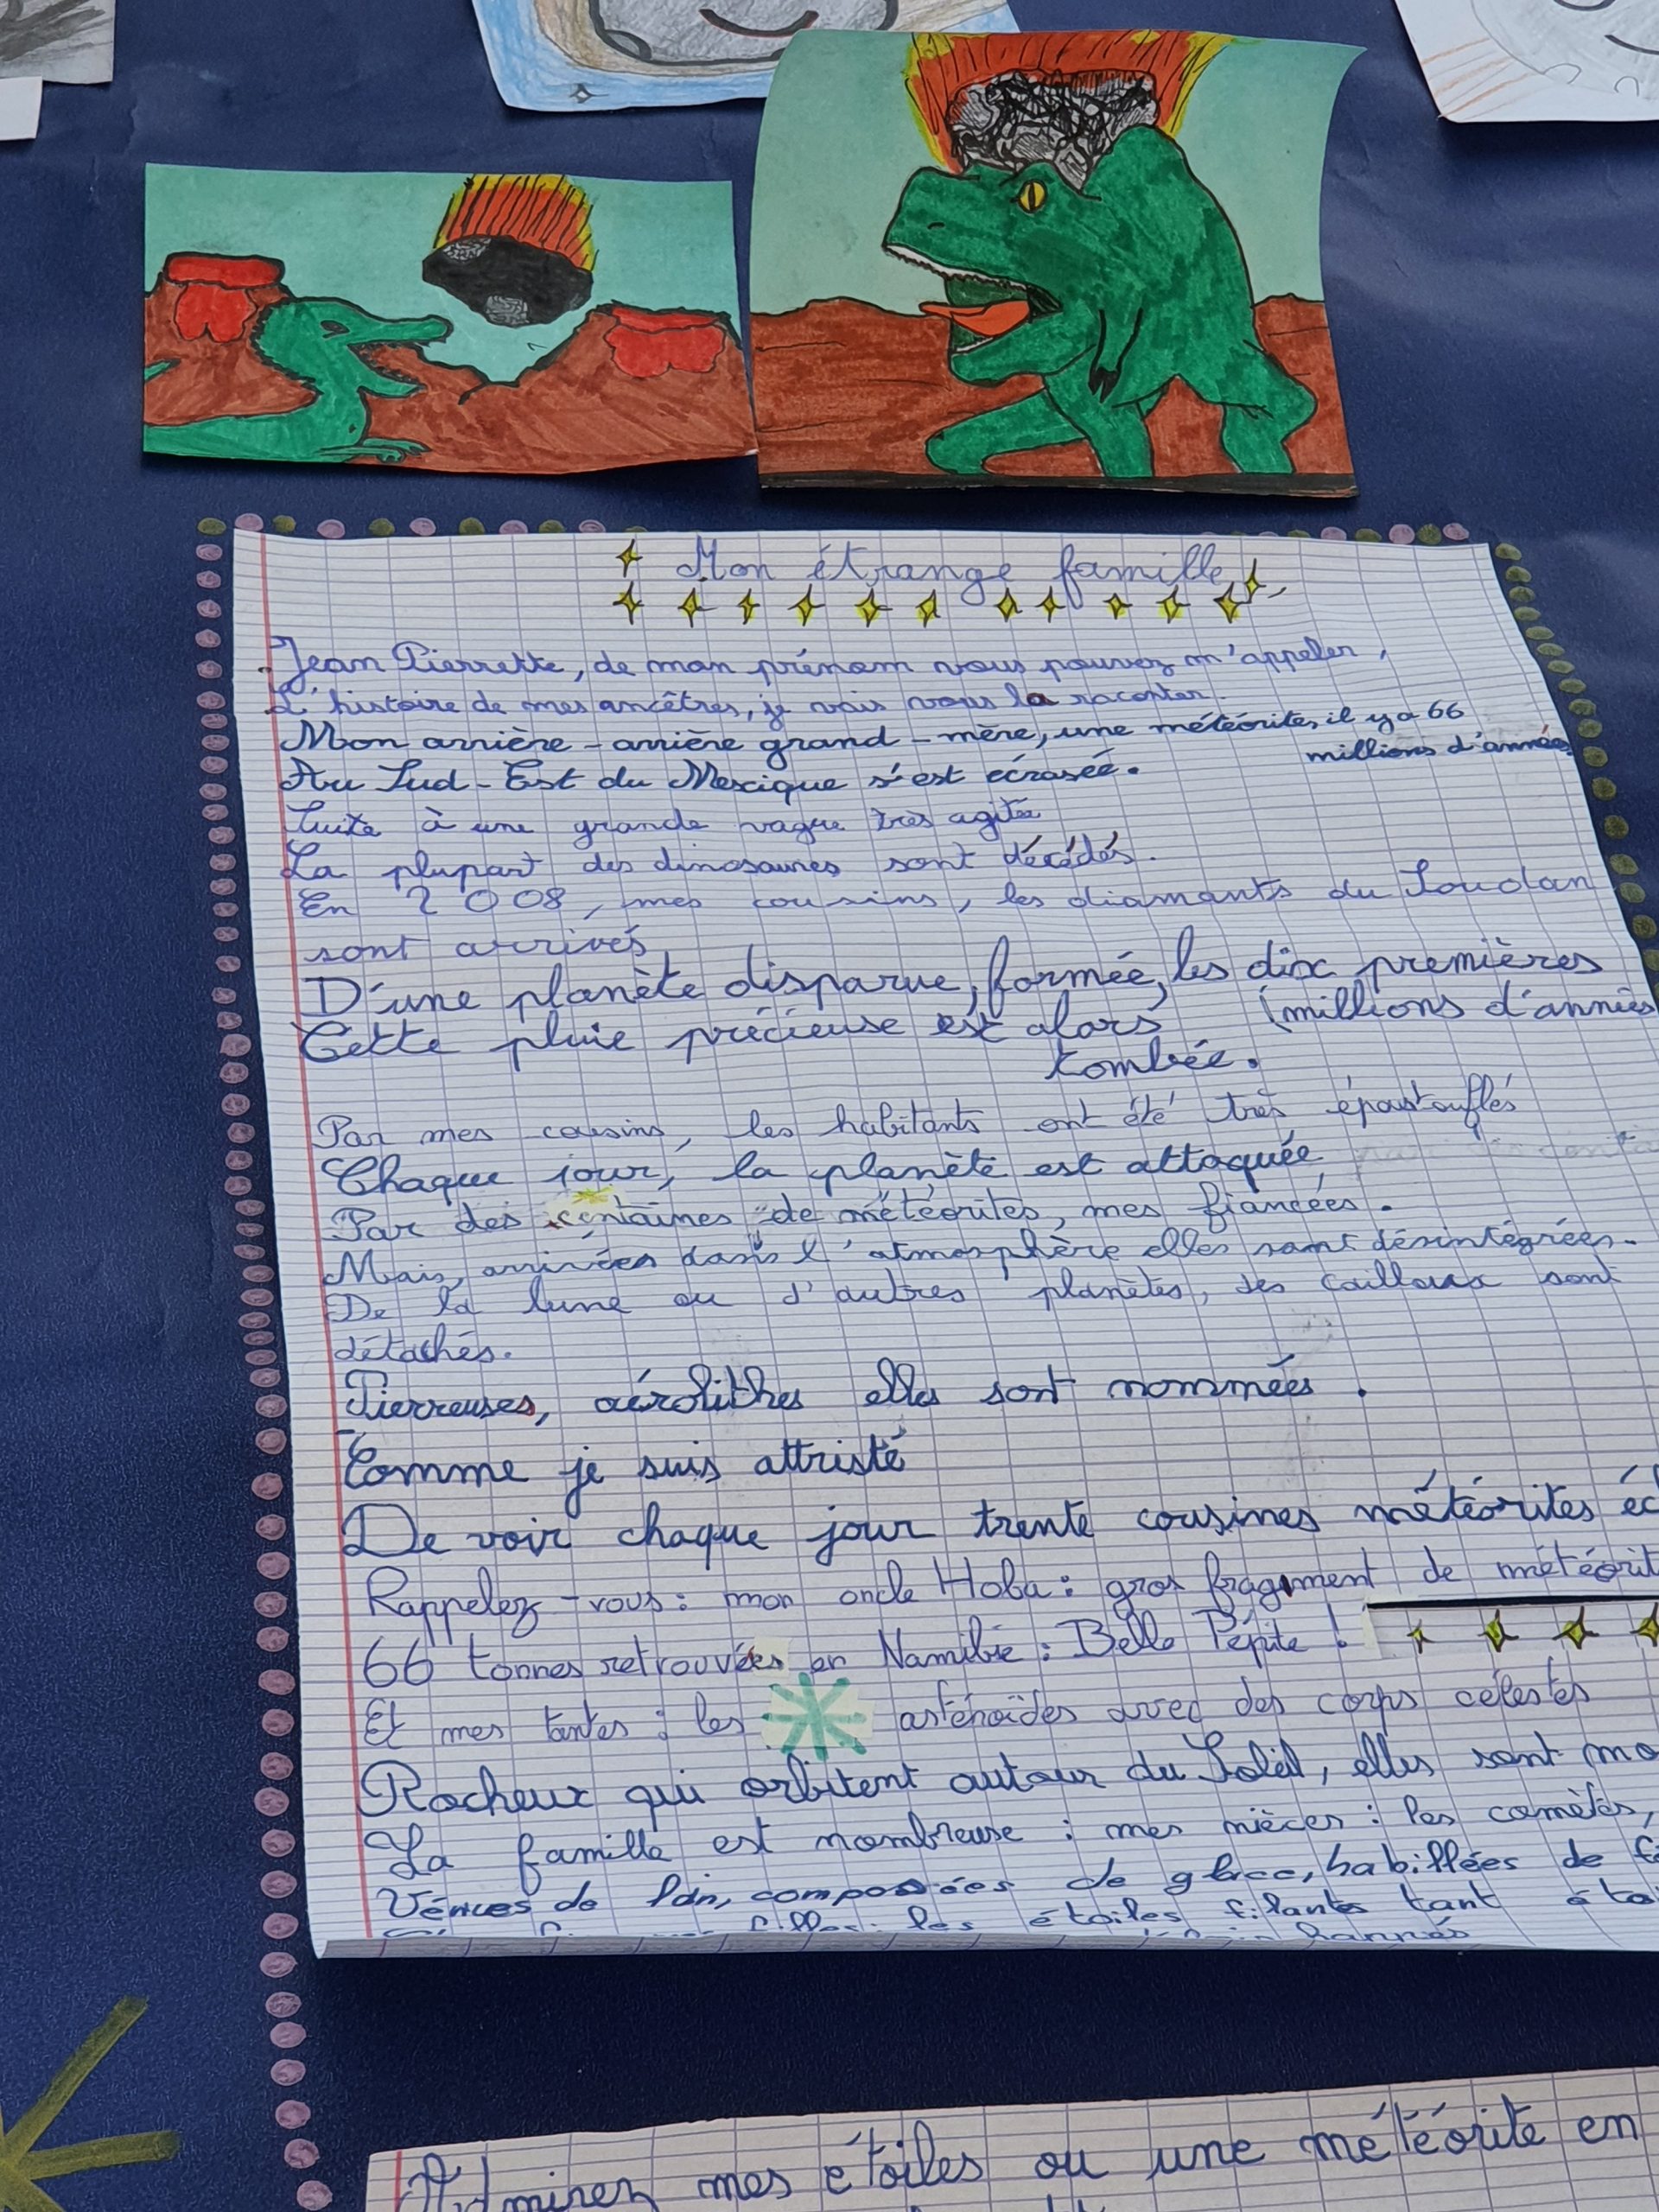 Mon étrange famille
Jean Pierrette, de mon prénom vous pouvez m'appeler,
L'histoire de mes ancêtres, je vais vous la raconter.
Mon arrière-arrière grand-mère, une météorites, il y a 66
millions d'années,
Au Sud-Est du Mexique s'est écrasée.
Suite à une grande vague très agitée
La plupart des dinosaures sont décédés.
En 2008, mes cousins, les diamants du Soudan
sont arrivés
D'une planète disparue, formée, les dix premières
(millions d'années
Cette pluie précieuse est alors
tombée.
Par mes cousins, les habitants ont été très époustouflés
Chaque jour, la planète est attaquée
Par des centaines de météorites, mes fiancées.
Mais, arrivées dans l'atmosphère elles sont désintégrées.
De la lune ou d'autres planètes, des cailloux sont
détachés.
Pierreuses, aérolithes elles sont nommées.
Comme je suis attristé
De voir chaque jour trente cousines météorites
Rappelez-vous : mon oncle Hoba : gros fragment de
66 tonnes retrouvées en Namibie : Belle Pépite !
Et mes tantes : les astéroïdes avec des corps célestes
Rocheux qui orbitent autour du Soleil, elles sont
La famille est nombreuse : mes nièces : les comètes,
Vénues de loin, composées de glace, habillées de
filles : les étoiles filantes tant
Admirez mes étoiles ou une météorite en